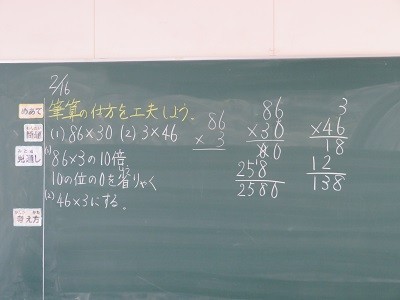 2/16
めあて
筆算の仕方を工夫しよう。
(1) 86×30 (2) 3×46
(1)
86×3の10倍
10の位の0を省りゃく
(2) 46×3にする。
見通し
考え方
86
× 3
86
×30
00
258
2580
3
×46
18
12
138